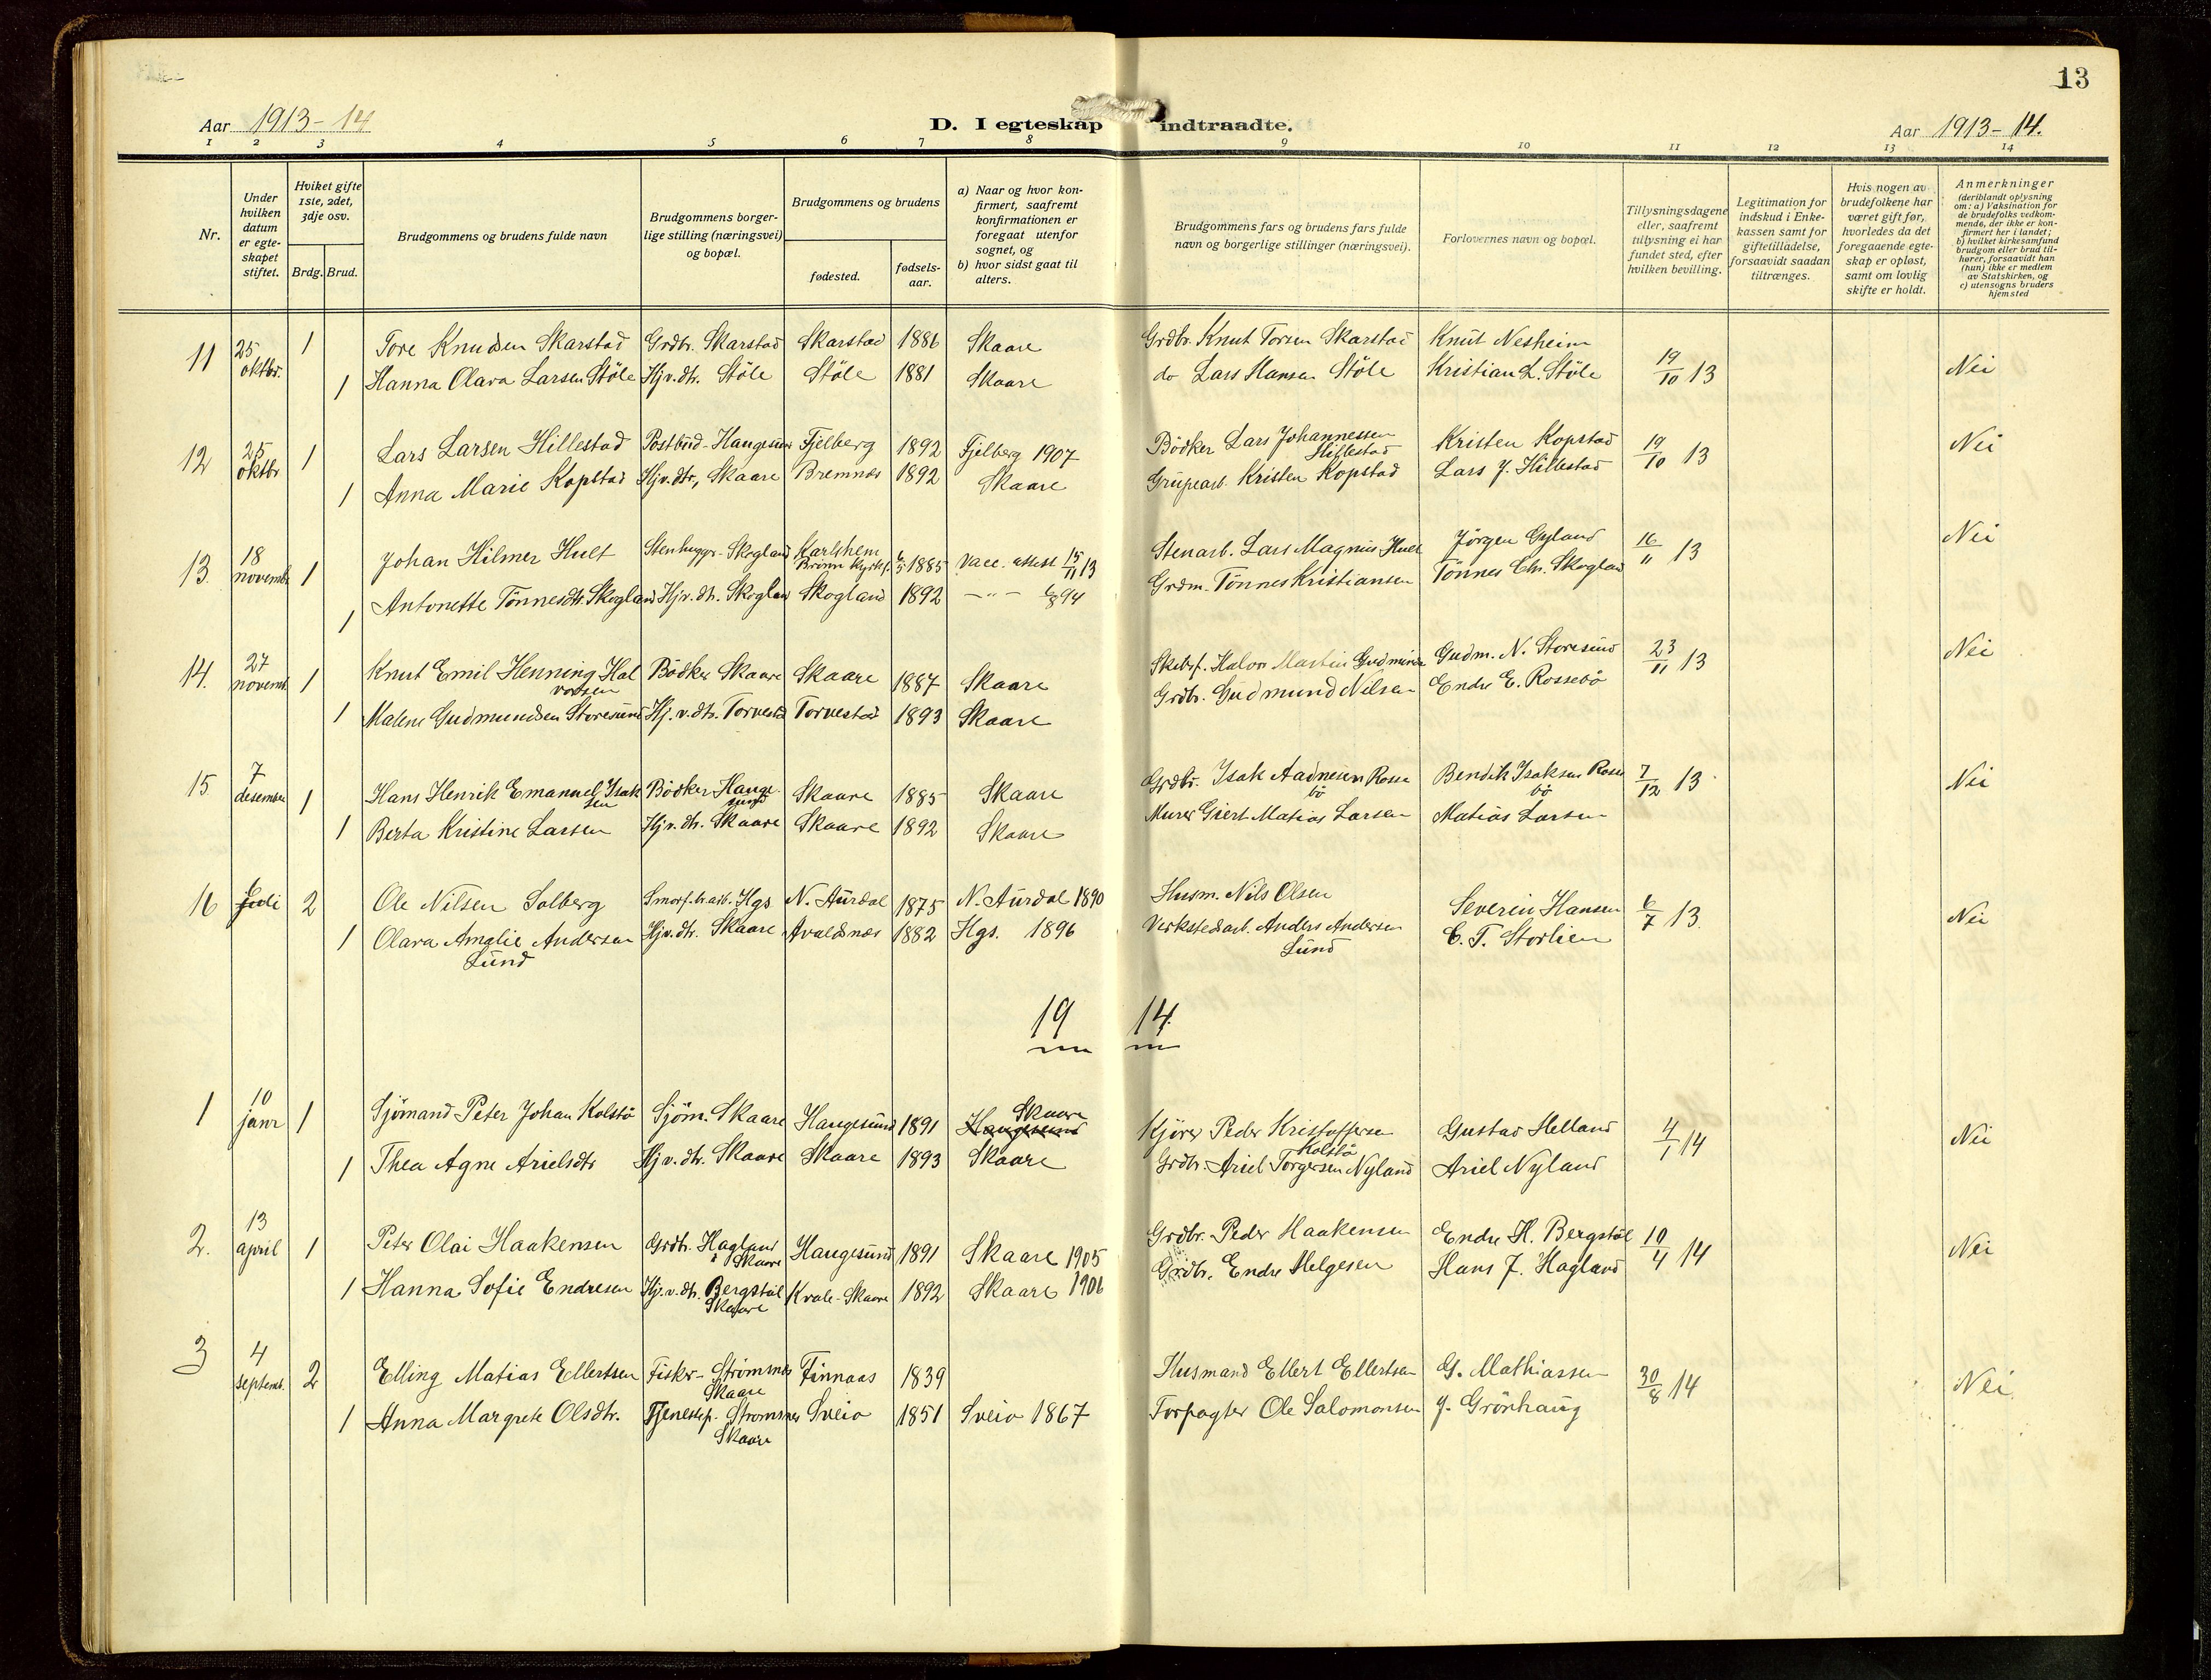 13
Aar 1913-14
D. I egteskap indtraadte.
Aar 1913-14.
1 2 3 4 5 6 7 8 9 10 11 12 13 14
Nr.
Under hvilken datum er egteskapet stiftet.
Hviket gifte 1ste, 2det, 3dje osv.
Brdg. Brud.
Brudgommens og brudens fulde navn
Brudgommens borgerlige stilling (næringsvei) og bopæl.
Brudgommens og brudens
fødested.
fødselsaar.
a) Naar og hvor konfirmert, saafremt konfirmationen er foregaat utenfor sognet, og
b) hvor sidst gaat til alters.
Brudgommens fars og brudens fars fulde navn og borgerlige stillinger (næringsvei).
Forlovernes navn og bopæl.
Tillysningsdagene eller, saafremt tillysning ei har fundet sted, efter hvilken bevilling.
Legitimation for indskud i Enkekassen samt for giftetilladelse, forsaavidt saadan tiltrænges.
Hvis nogen av brudefolkene har været gift før, hvorledes da det foregaaende egteskap er opløst, samt om lovlig skifte er holdt.
Anmerkninger (deriblandt oplysning om: a) Vaksination for de brudefolks vedkommende, der ikke er konfirmert her i landet; b) hvilket kirkesamfund brudgom eller brud tilhører, forsaavidt han (hun) ikke er medlem av Statskirken, og c) utensogns bruders hjemsted
11 25 oktbr. 1 Tore Knudsen Skarstad Grdbr. Skarstad Skarstad 1886 Skaare Grdbr. Knut Torsen Skarstad Knut Nesheim 19/10 13 Nei
1 Hanna Olava Larsen Stöle Hjv.dtr. Stöle Stöle 1881 Skaare do Lars Hansen Stöle Kristian L. Stöle
12 25 oktbr 1 Lars Larsen Hillestad Postbud-Haugesund Fjelberg 1892 Fjelberg 1907 Bödker Lars Johannessen Hillestad Kristen Kopstad 19/10 13 Nei
1 Anna Marie Kopstad Hjv.dtr, Skaare Bremnes 1892 Skaare Grubearb. Kristen Kopstad Lars J. Hillestad
13. 18 novembr 1 Johan Hilmer Hult Stenhugger-Skogland Karlshem 1885 Vacc. attest 15/11 13 Stenarb. Lars Magnus Hult Jörgen Gyland 16/11 13 Nei
1 Antonette Tönnesdtr. Skogland Hjv.dtr. Skogland Skogland 1892 -"- 6/8 94 Grdm. Tönnes Kristiansen Tönnes Chr. Skogland
14. 27 novemb. 1 Knut Emil Henning Halvorsen Bödker Skaare Skaare 1887 Skaare Skibsf. Halvor Martin Gudm. N. Storesund 23/11 13 Nei
1 Malene Gudmundsen Storesund Hj.v.dtr. Torvestad Torvestad 1893 Skaare Grdbr. Gudmund Nilsen Endre E. Rossebö
15. 7 desember 1 Hans Henrik Emanuel Isaksen Bödker Haugesund Skaare 1885 Skaare Grdbr. Isak Aadnesen Rossebö Bendik Isaksen Rossebö 7/12 13 Nei
1 Berta Kristine Larsen Hjv.dtr. Skaare Skaare 1892 Skaare Murer Giert Matias Larsen Matias Larsen
16 6 juli 2 Ole Nilsen Solberg Smørf.br.arb. Hgs N. Aurdal 1875 N. Aurdal 1890 Husm. Nils Olsen Severin Hansen 6/7 13. Nei
1 Olava Amalie Andersen Lund Hjv.dtr. Skaare Avaldsnes 1882 Hgs. 1896 Verkstedarb. Anders Andersen Lund C. T. Storlien
19 14.
1 10 janr 1 Sjömand Peter Johan Kolstö Sjöm. Skaare Haugesund 1891 Skaare Haugesund Kjörer Peder Kristoffersen Kolstö Gustav Helland 4/1 14 Nei
1 Thea Agne Arielsdtr Hjv.dtr. Skaare Skaare 1893 Skaare Grdbr. Ariel Torgersen Nyland Ariel Nyland
2. 13 april 1 Peter Olai Haakensen Grdbr. Hagland i Skaare Haugesund 1891 Skaare 1905 Grdbr. Peder Haakensen Endre H. Bergstöl 19/4 14 Nei
1 Hanna Sofie Endresen Hj.v.dtr. Bergstöl Skaare Kvale-Skaare 1892 Skaare 1906 Grdbr. Endre Helgesen Hans J. Hagland
3 4 septemb. 2 Elling Matias Ellertsen Fisker-Strömsnes Skaare Finnaas 1839 Husmand Ellert Ellertsen G. Mathiassen 30/8 14 Nei
1 Anna Margrete Olsdtr. Tjenestep. Stromsnes Skaare Sveio 1851 Sveio 1867 Forpagter Ole Salomonsen J. Grönhaug